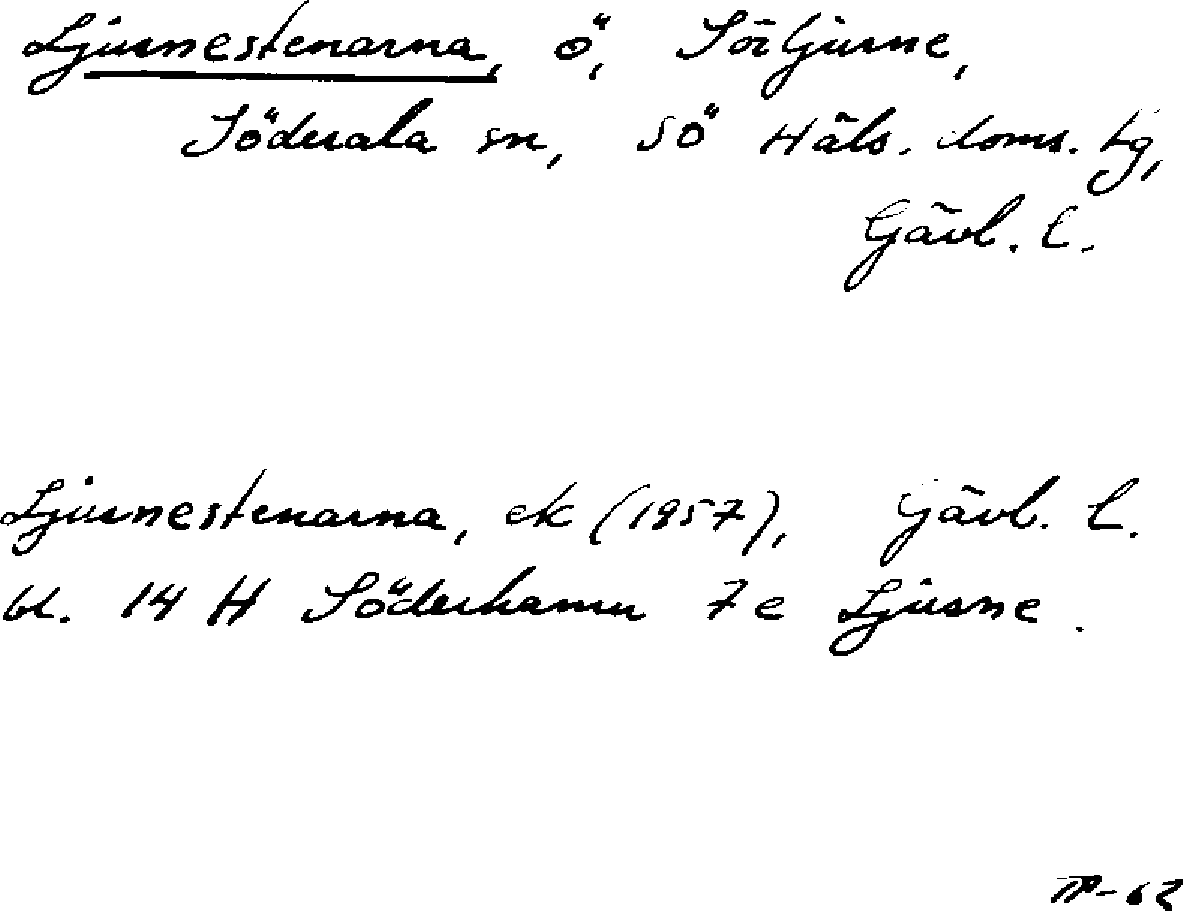 Ljusnestenarna, ö, Sörljusne,
Söderala sn, SÖ Häls. doms. tg,
Gävl. l.
Ljusnestenarna, ek (1957), Gävl. l.
bl. 14 H Söderhamn 7 e Ljusne.
TP-62